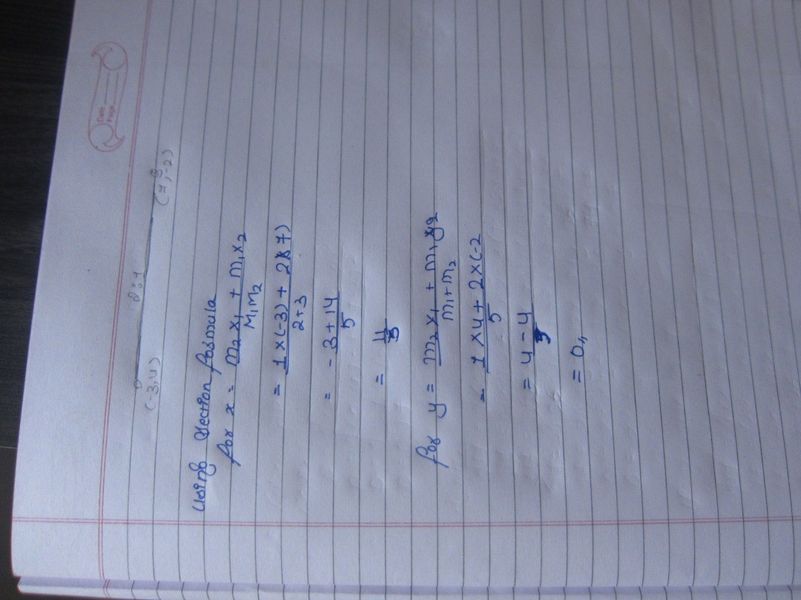 Date
Page
2:1
(-3,4) (7,-2)
Using Section formula
for x = m2x1 + m1x2 / m1m2
= 1×(-3) + 2(×7) / 2+3
= -3+14 / 5
= 11 / 5
for y = m2x1 + m1y2 / m1+m2
= 1×4+2×(-2 / 5
= 4-4 / 5
= 0,,